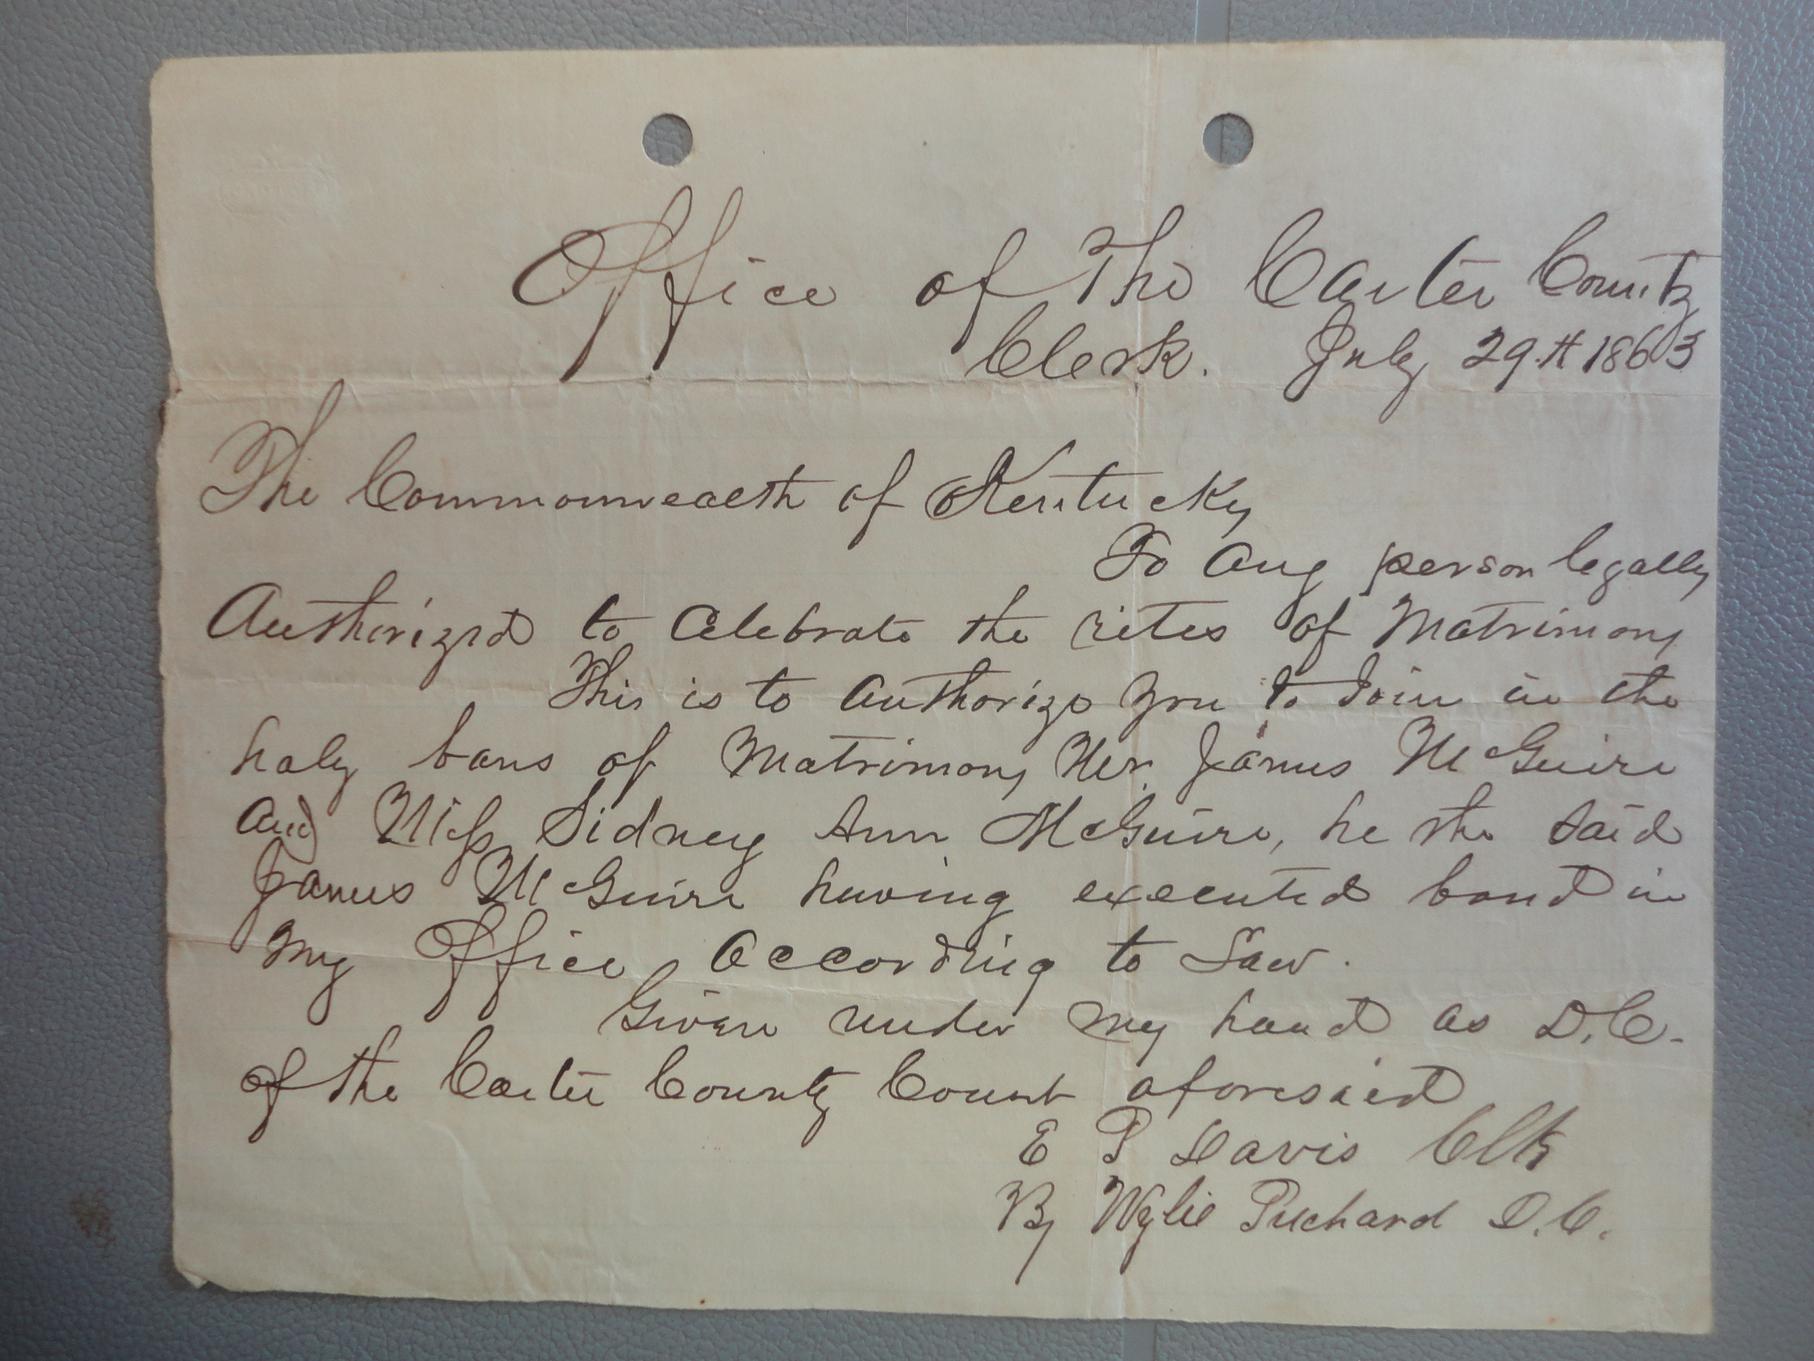 Office of The Carter County
Clerk. July 29th 1863
The Commonwealth of Kentucky
To any person legally
Authorized to Celebrate the rites of Matrimony
This is to authorize you to Join in the
holy bans of Matrimony Mr. James McGuire
and Miss Sidney Ann McGuire, he the said
James McGuire having executed bond in
my Office according to Law.
Given under my hand as D.C.
of the Carter County Court aforesaid
E P Davis Clk
By Wylie Prichard D.C.